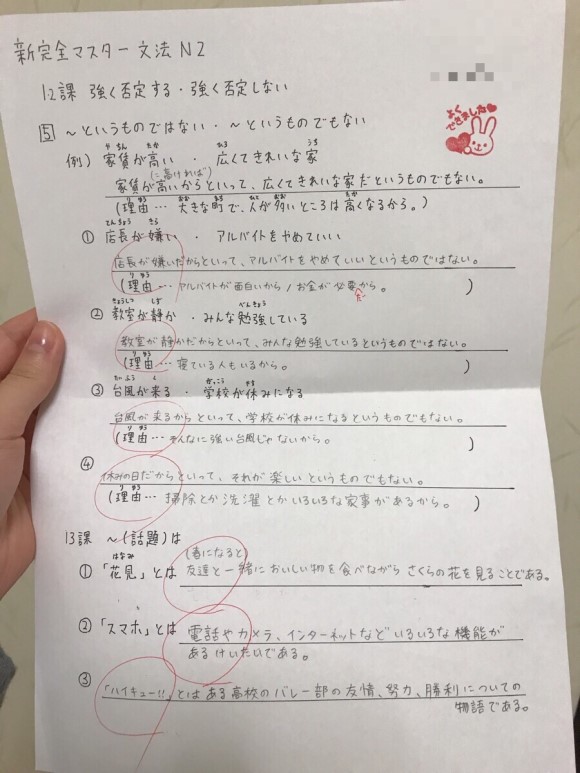 新完全マスター文法N2
12課 強く否定する・強く否定しない
よくできました
5 〜というものではない・〜というものでもない
やちん たか ひろ うち
例) 家賃が高い ・ 広くてきれいな家
(に高ければ)
家賃が高いからといって、広くてきれいな家だというものでもない。
りゆう おお まち ひと おお たか
(理由… 大きな町で、人が多いところは高くなるから。)
てんちょう きら
① 店長が嫌い ・ アルバイトをやめていい
店長が嫌いだからといって、アルバイトをやめていいというものではない。
りゆう
(理由… アルバイトが面白いから/お金が必要から。)
だ
きょうしつ しず べんきょう
② 教室が静か ・みんな勉強している
教室が静かだからといって、みんな勉強しているというものではない。
りゆう
(理由… 寝ている人もいるから。 )
たいふう く がっこう やす
③ 台風が来る ・ 学校が休みになる
台風が来るからといって、学校が休みになるというものでもない。
りゆう
(理由… そんなに強い台風じゃないから。 )
④
休みの日だからといって、それが楽しいというものでもない。
りゆう
(理由… 掃除とか洗濯とかいろいろな家事があるから。 )
13課 〜(話題)は
はなみ (春になると)
①「花見」とは 友達と一緒においしい物を食べながらさくらの花を見ることである。
②「スマホ」とは 電話やカメラ、インターネットなどいろいろな機能が
あるけいたいである。
③
「ハイキュー!!」とはある高校のバレー部の友情、努力、勝利についての
物語である。